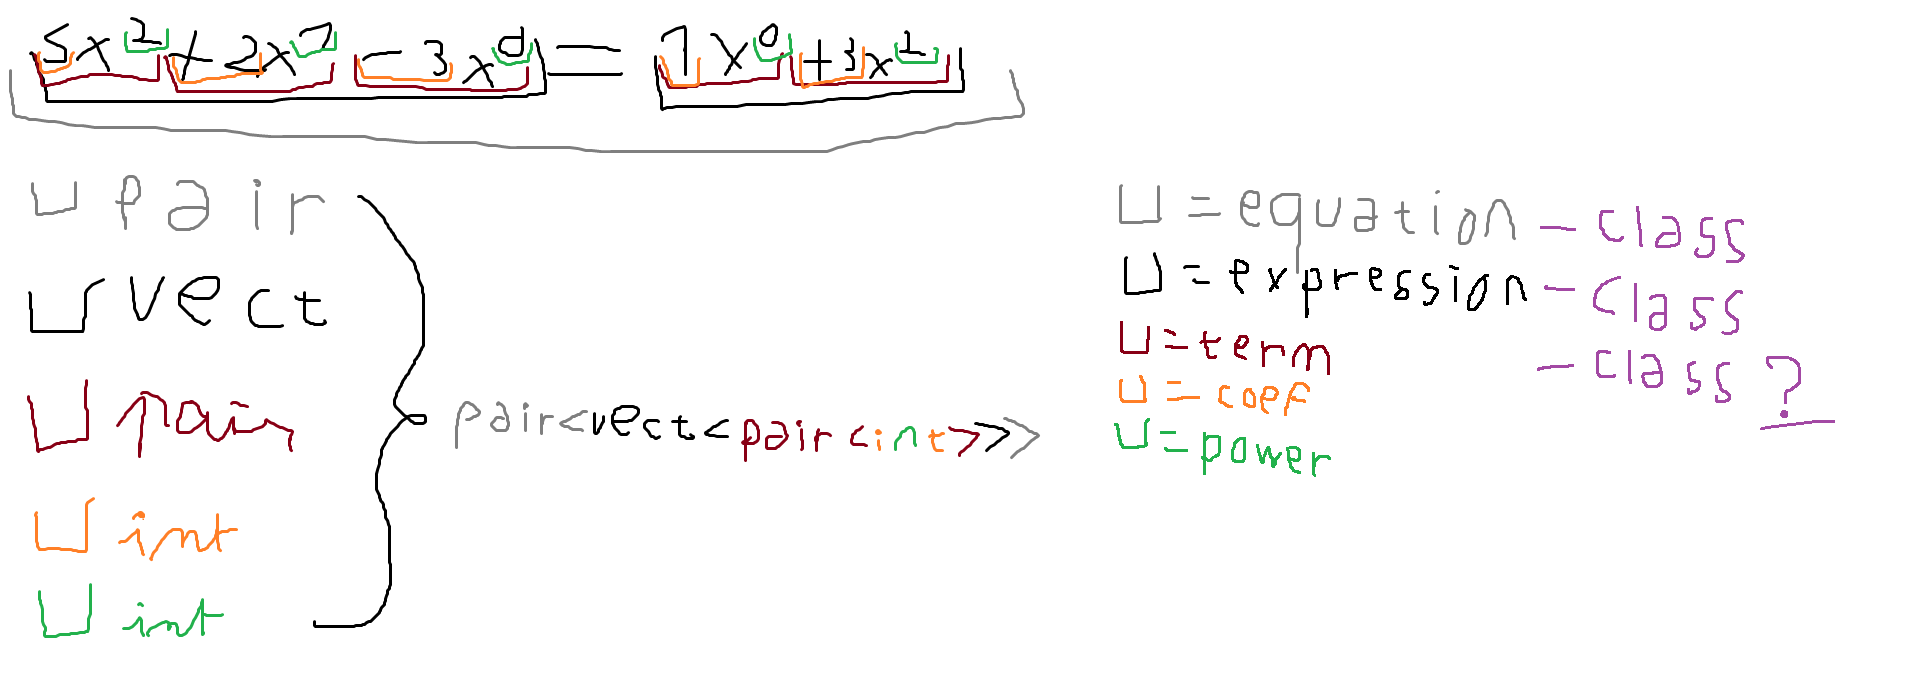 5x² + 2x⁷ - 3x⁰ = 7x⁰ + 3x¹
pair
vect
pair
int
int
pair<vect<pair<int>>>
= equation - class
= expression - class
= term - class ?
= coef
= power